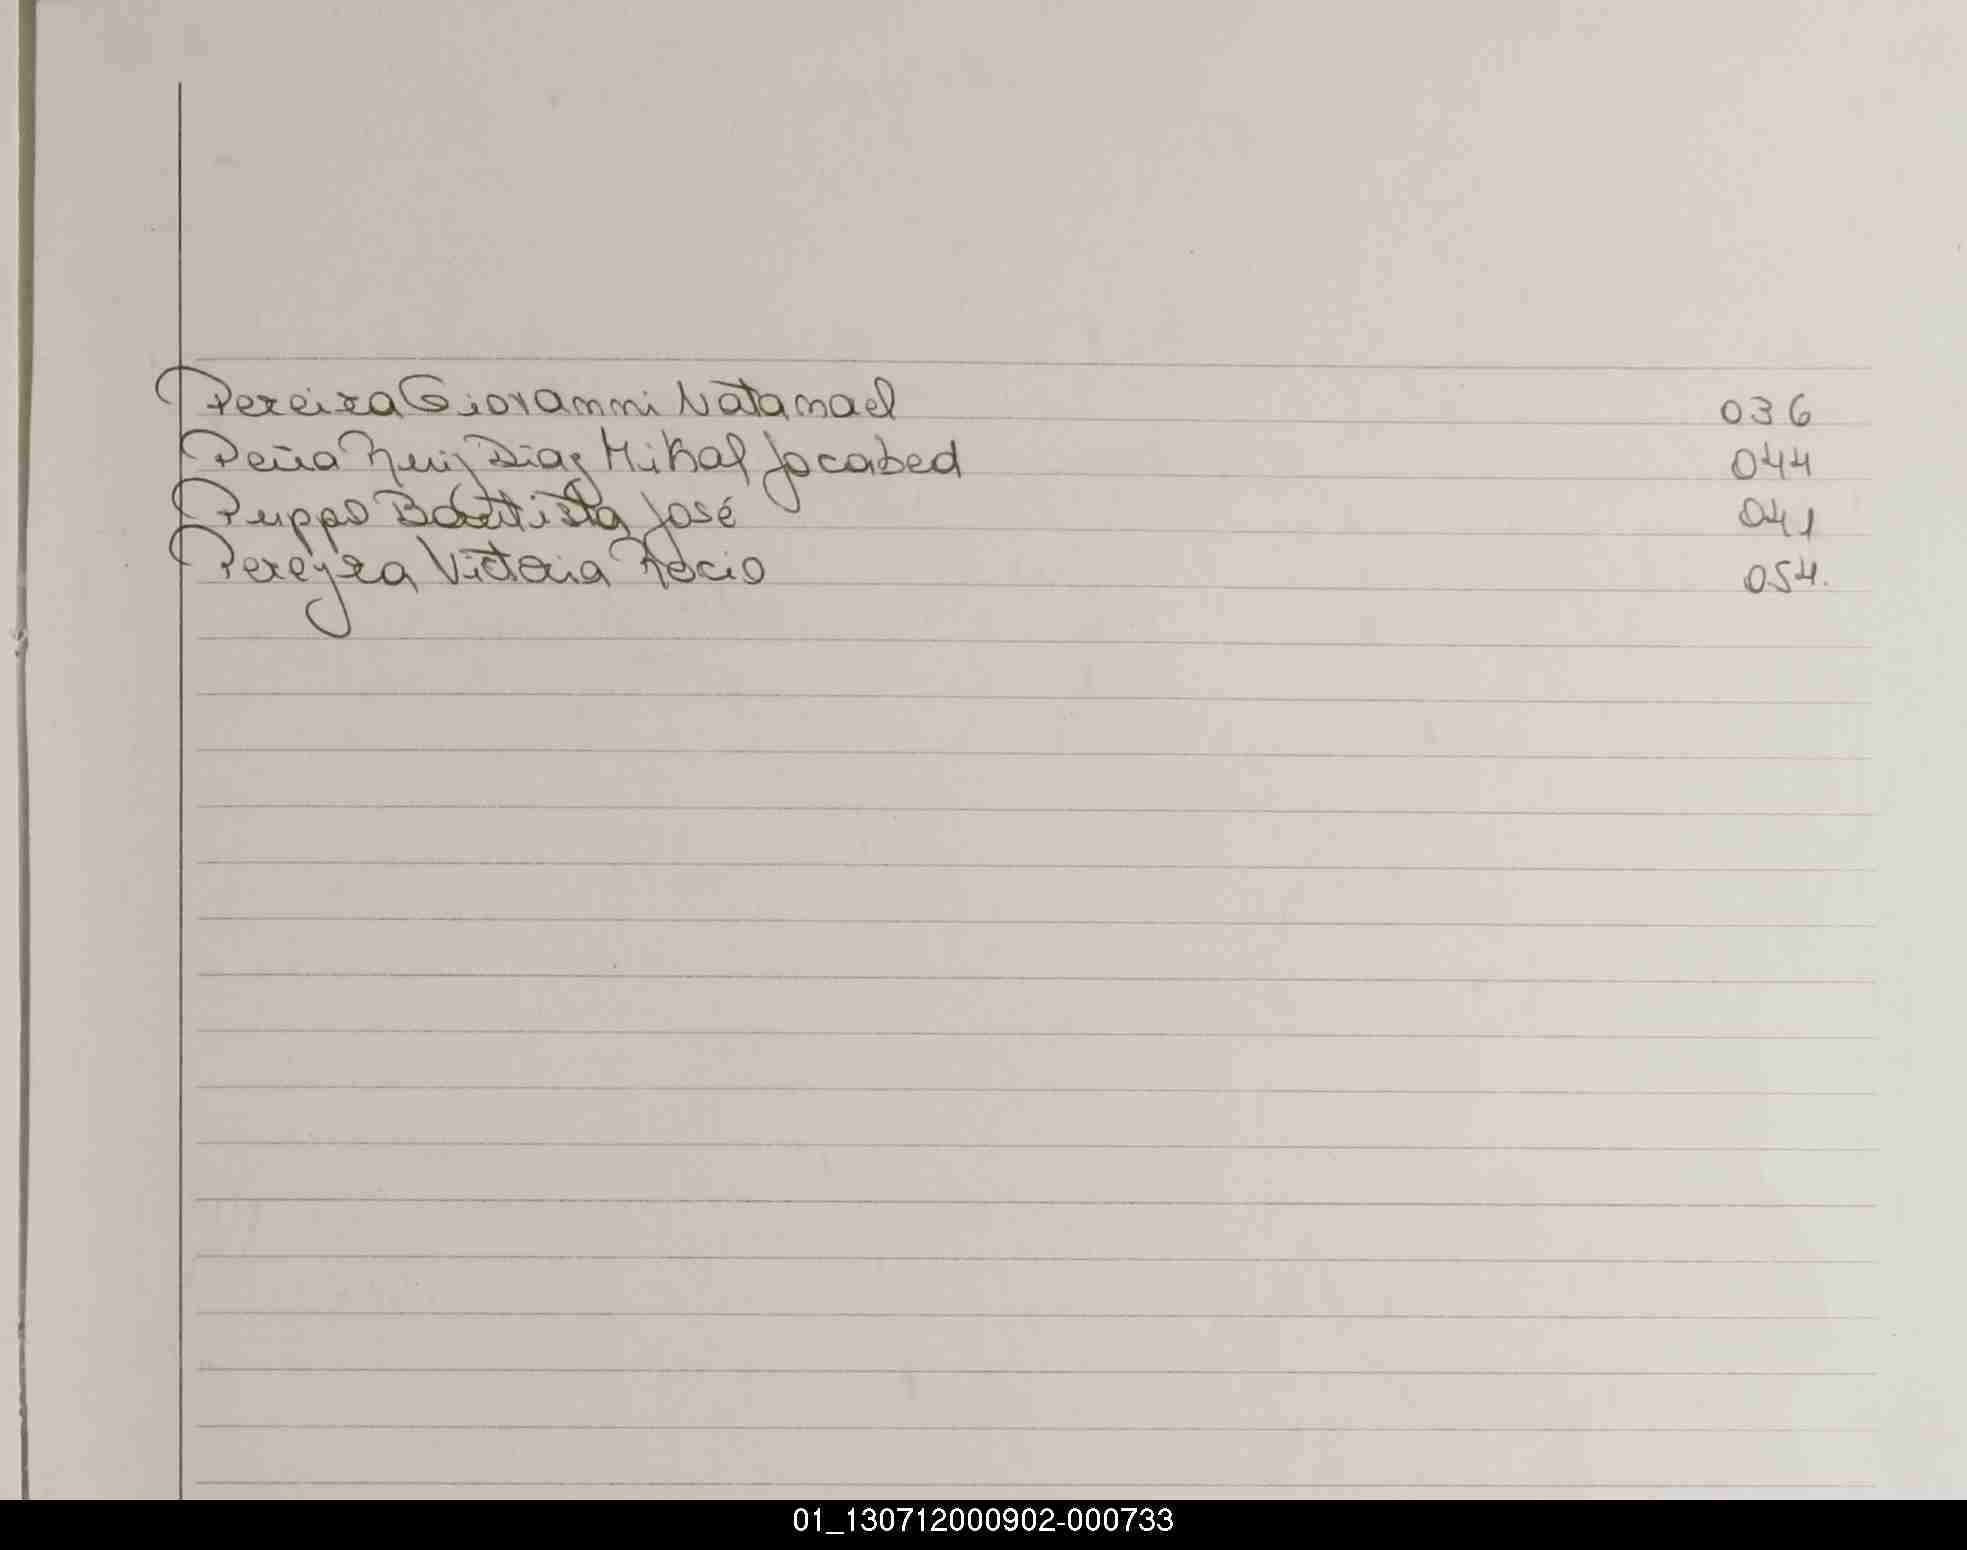 Pereira Giovanni Natanael 036
Peña Ruiz Diaz Mikal Jocabed 044
Puppo Bautista José 041
Pereyra Victoria Rocio 054.
01_130712000902-000733